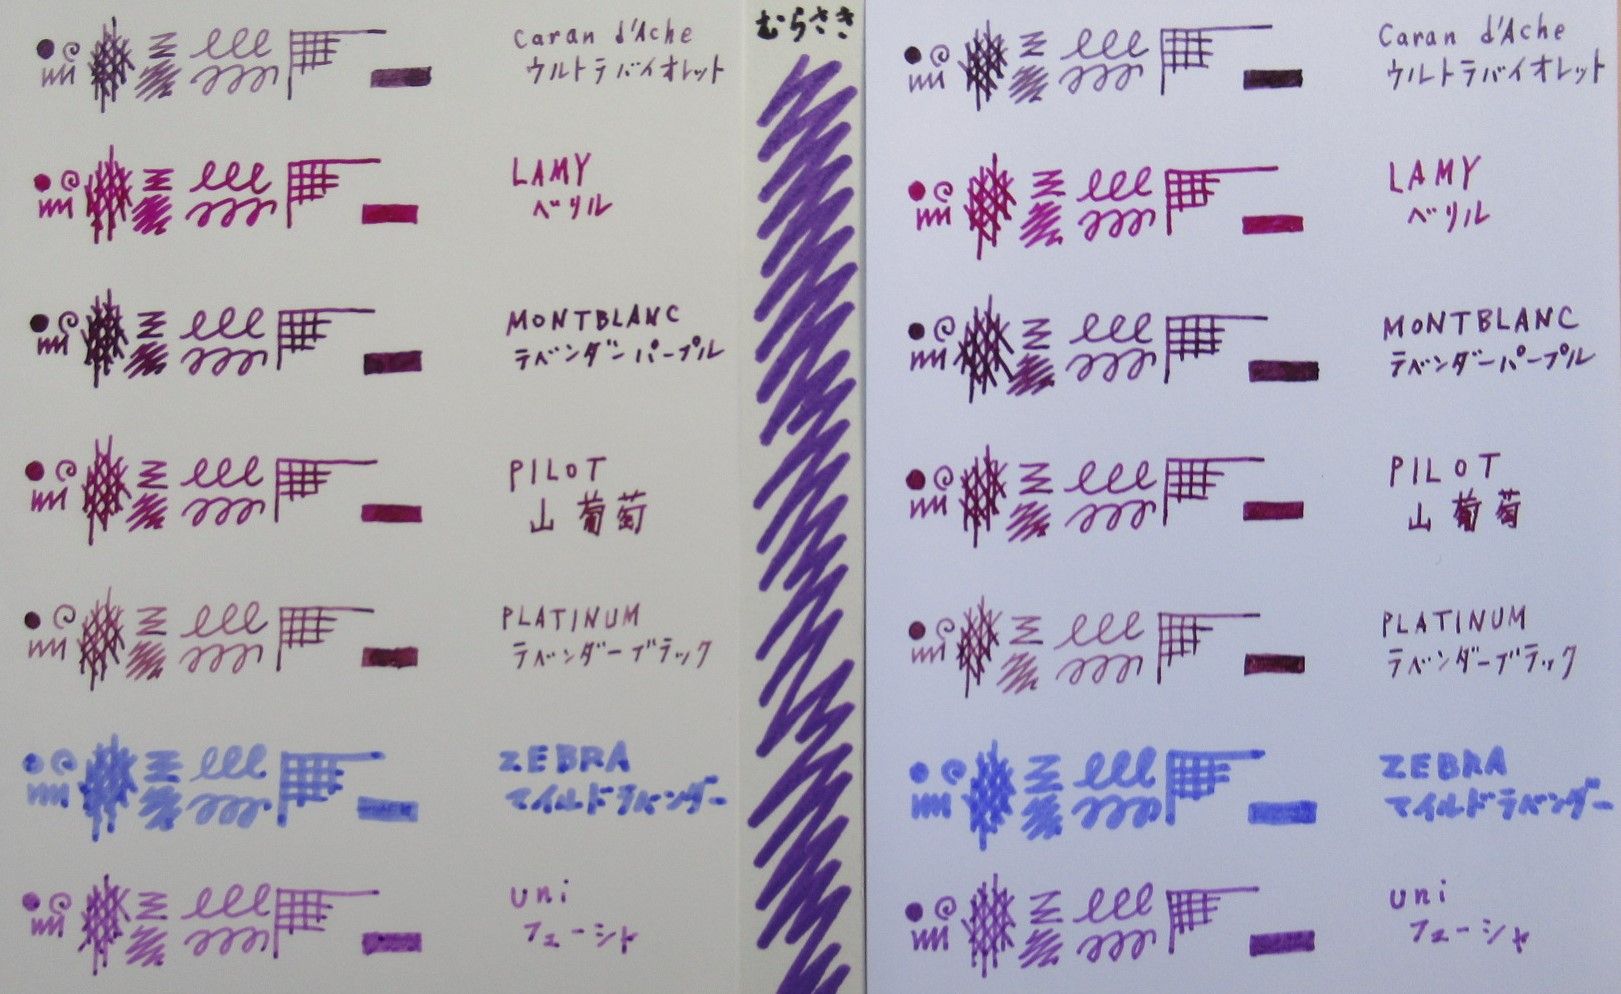 むらさき
Caran d'Ache
ウルトラバイオレット
LAMY
ベリル
MONTBLANC
ラベンダーパープル
PILOT
山葡萄
PLATINUM
ラベンダーブラック
ZEBRA
マイルドラベンダー
uni
フューシャ
Caran d'Ache
ウルトラバイオレット
LAMY
ベリル
MONTBLANC
ラベンダーパープル
PILOT
山葡萄
PLATINUM
ラベンダーブラック
ZEBRA
マイルドラベンダー
uni
フューシャ